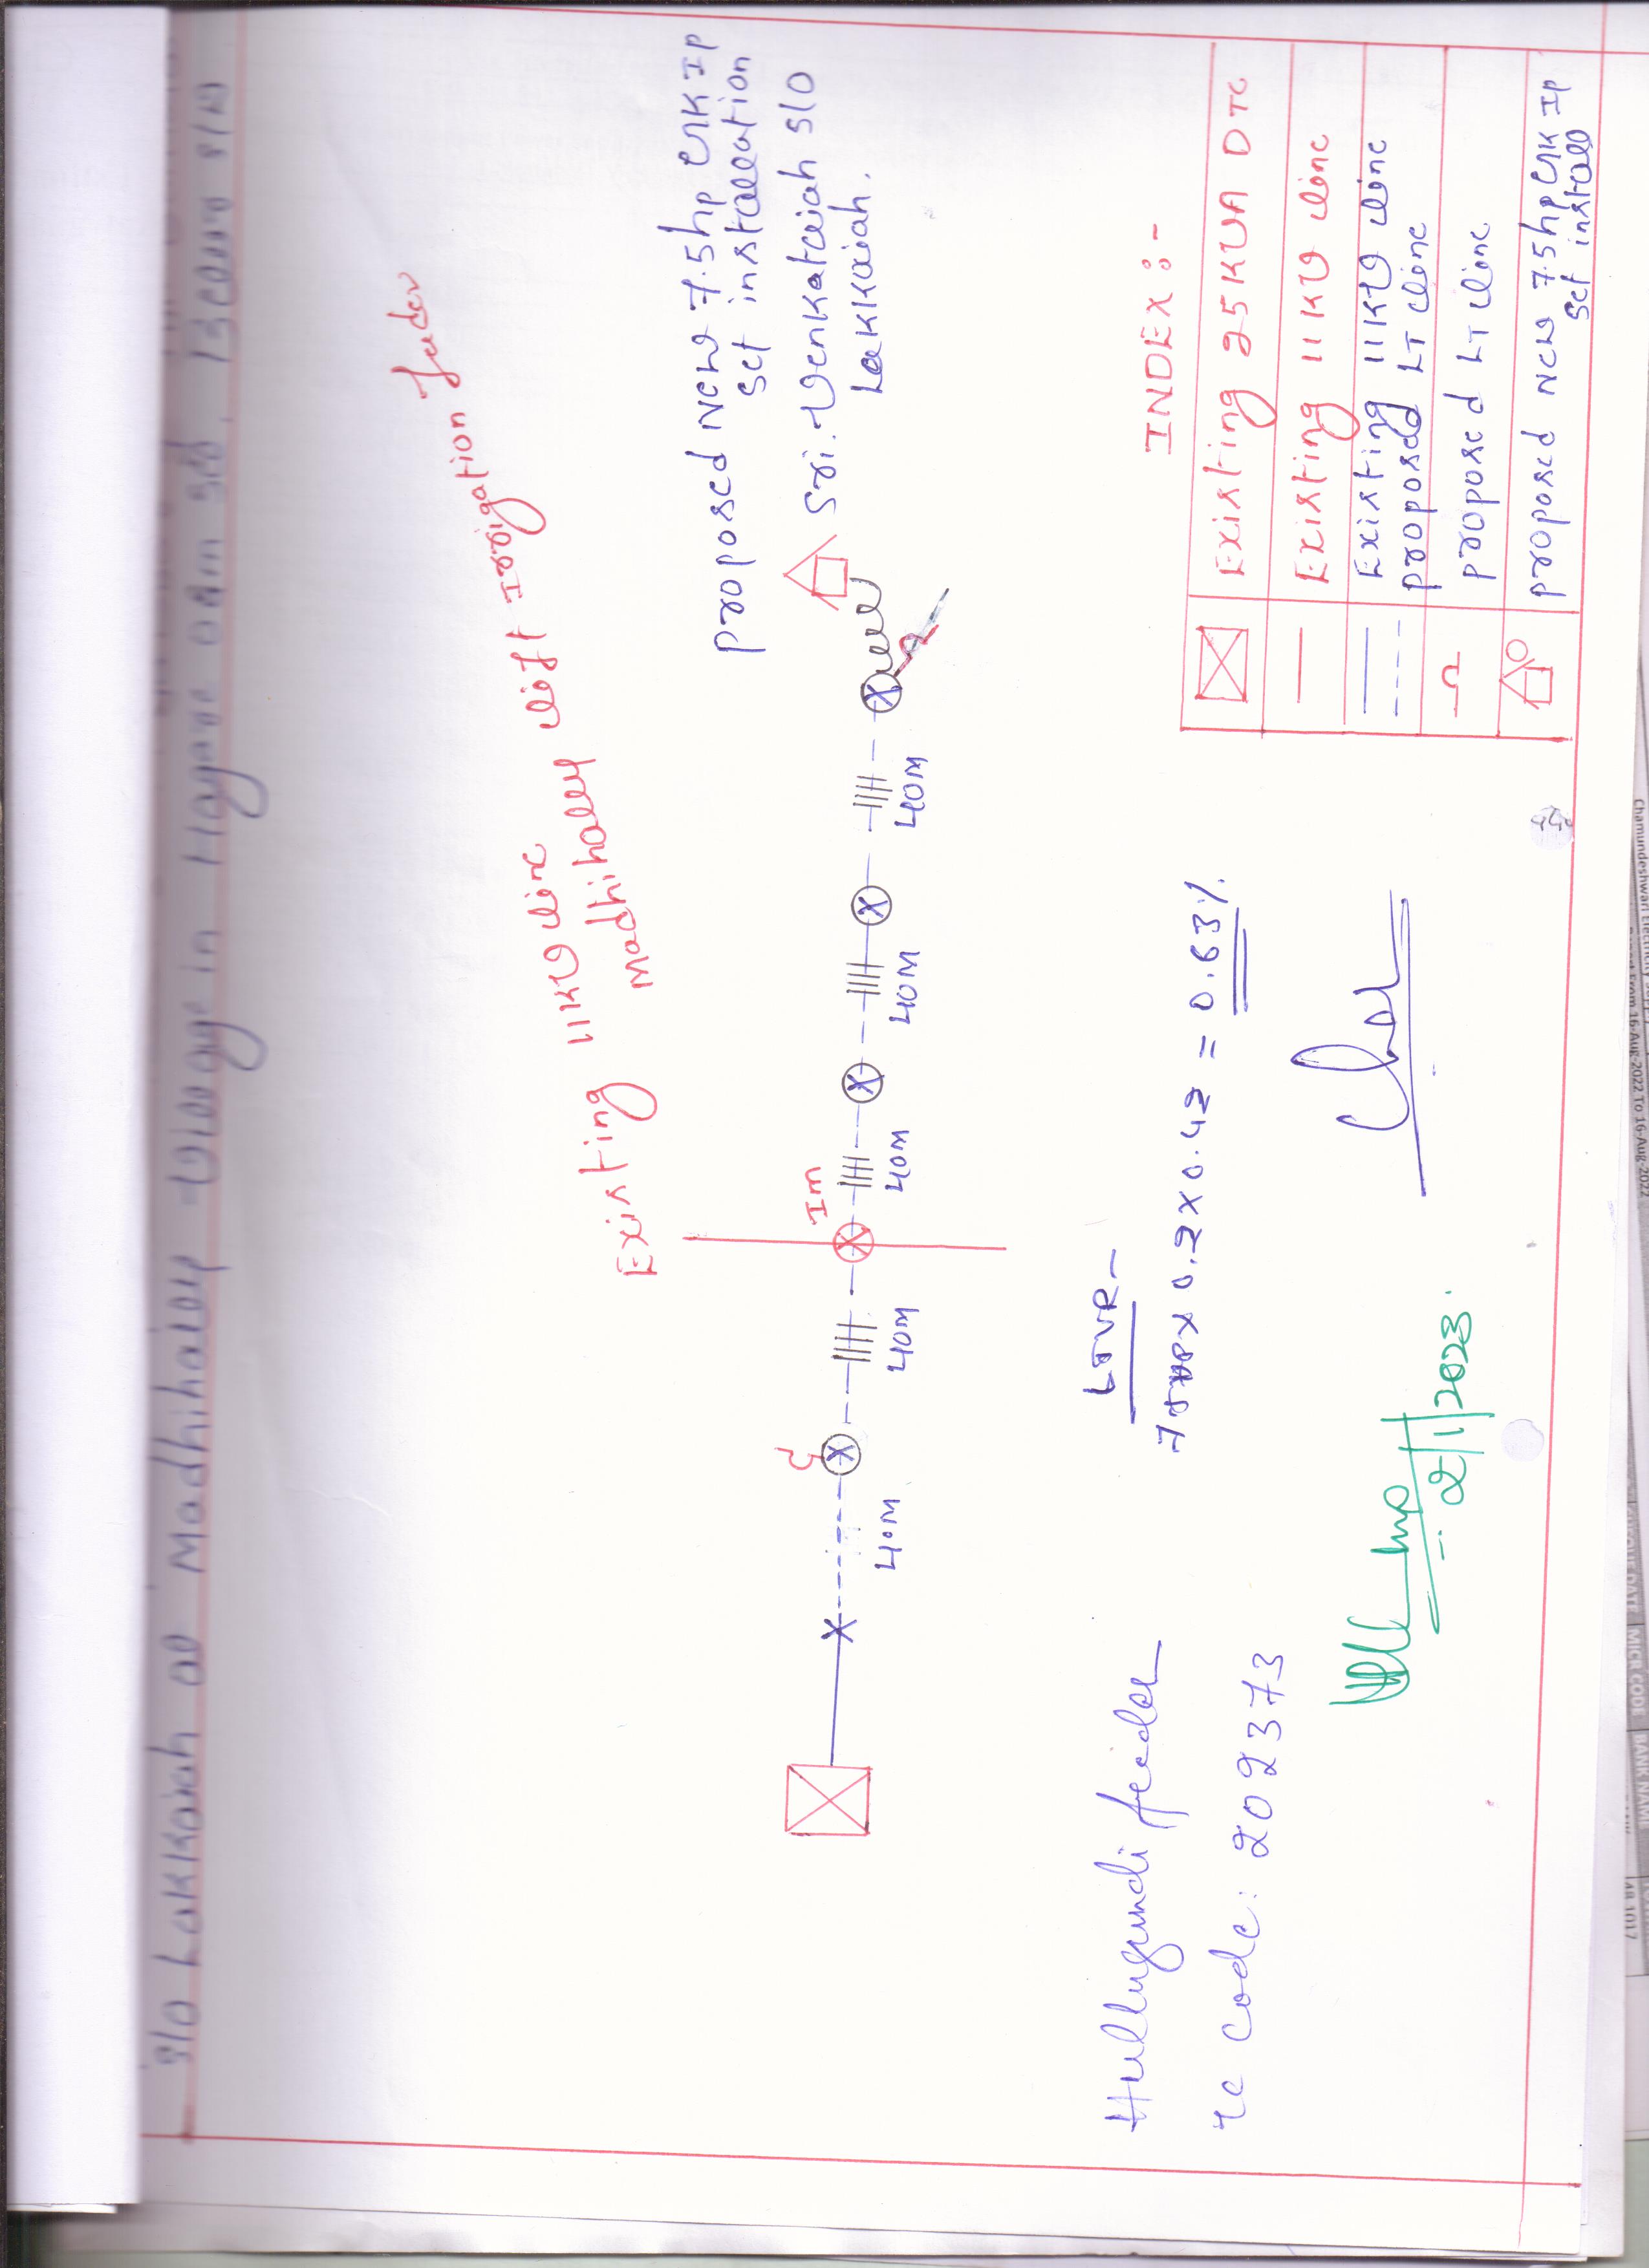 s/o Lakkaiah at Madhihalley village in
Existing 11KV line
Madhihalley lift Irrigation feeder
proposed New 7.5hp IP
set installation
Sri. Venkataiah s/o
Lakkaiah.
40M
40M
Im
40M
40M
40M
LTVR-
x 0.2 x 0.42 = 0.63%
Hullugundi feeder
code: 202373
2/1/2023.
INDEX :-
Existing 25KVA DTC
Existing 11KV line
Existing 11KV line
proposed LT line
proposed LT line
proposed New 7.5hp IP
set install
Chamundeshwari Electricity
From 16-Aug-2022 To 16-Aug-2022
DATE
MICR CODE
BANK NAME